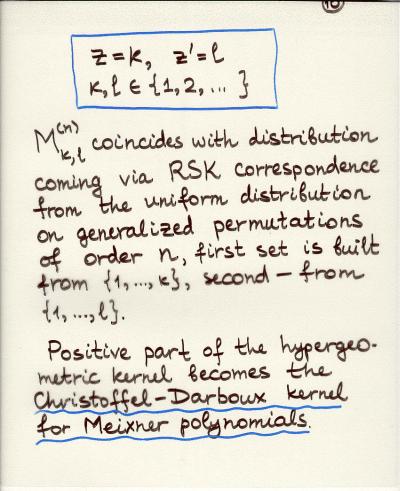 z = k, z' = l
k, l ∈ {1, 2, ... }
M^{(n)}_{k,l} coincides with distribution
coming via RSK correspondence
from the uniform distribution
on generalized permutations
of order n, first set is built
from {1, ..., k}, second – from
{1, ..., l}.
Positive part of the hypergeo-
metric kernel becomes the
Christoffel-Darboux kernel
for Meixner polynomials.